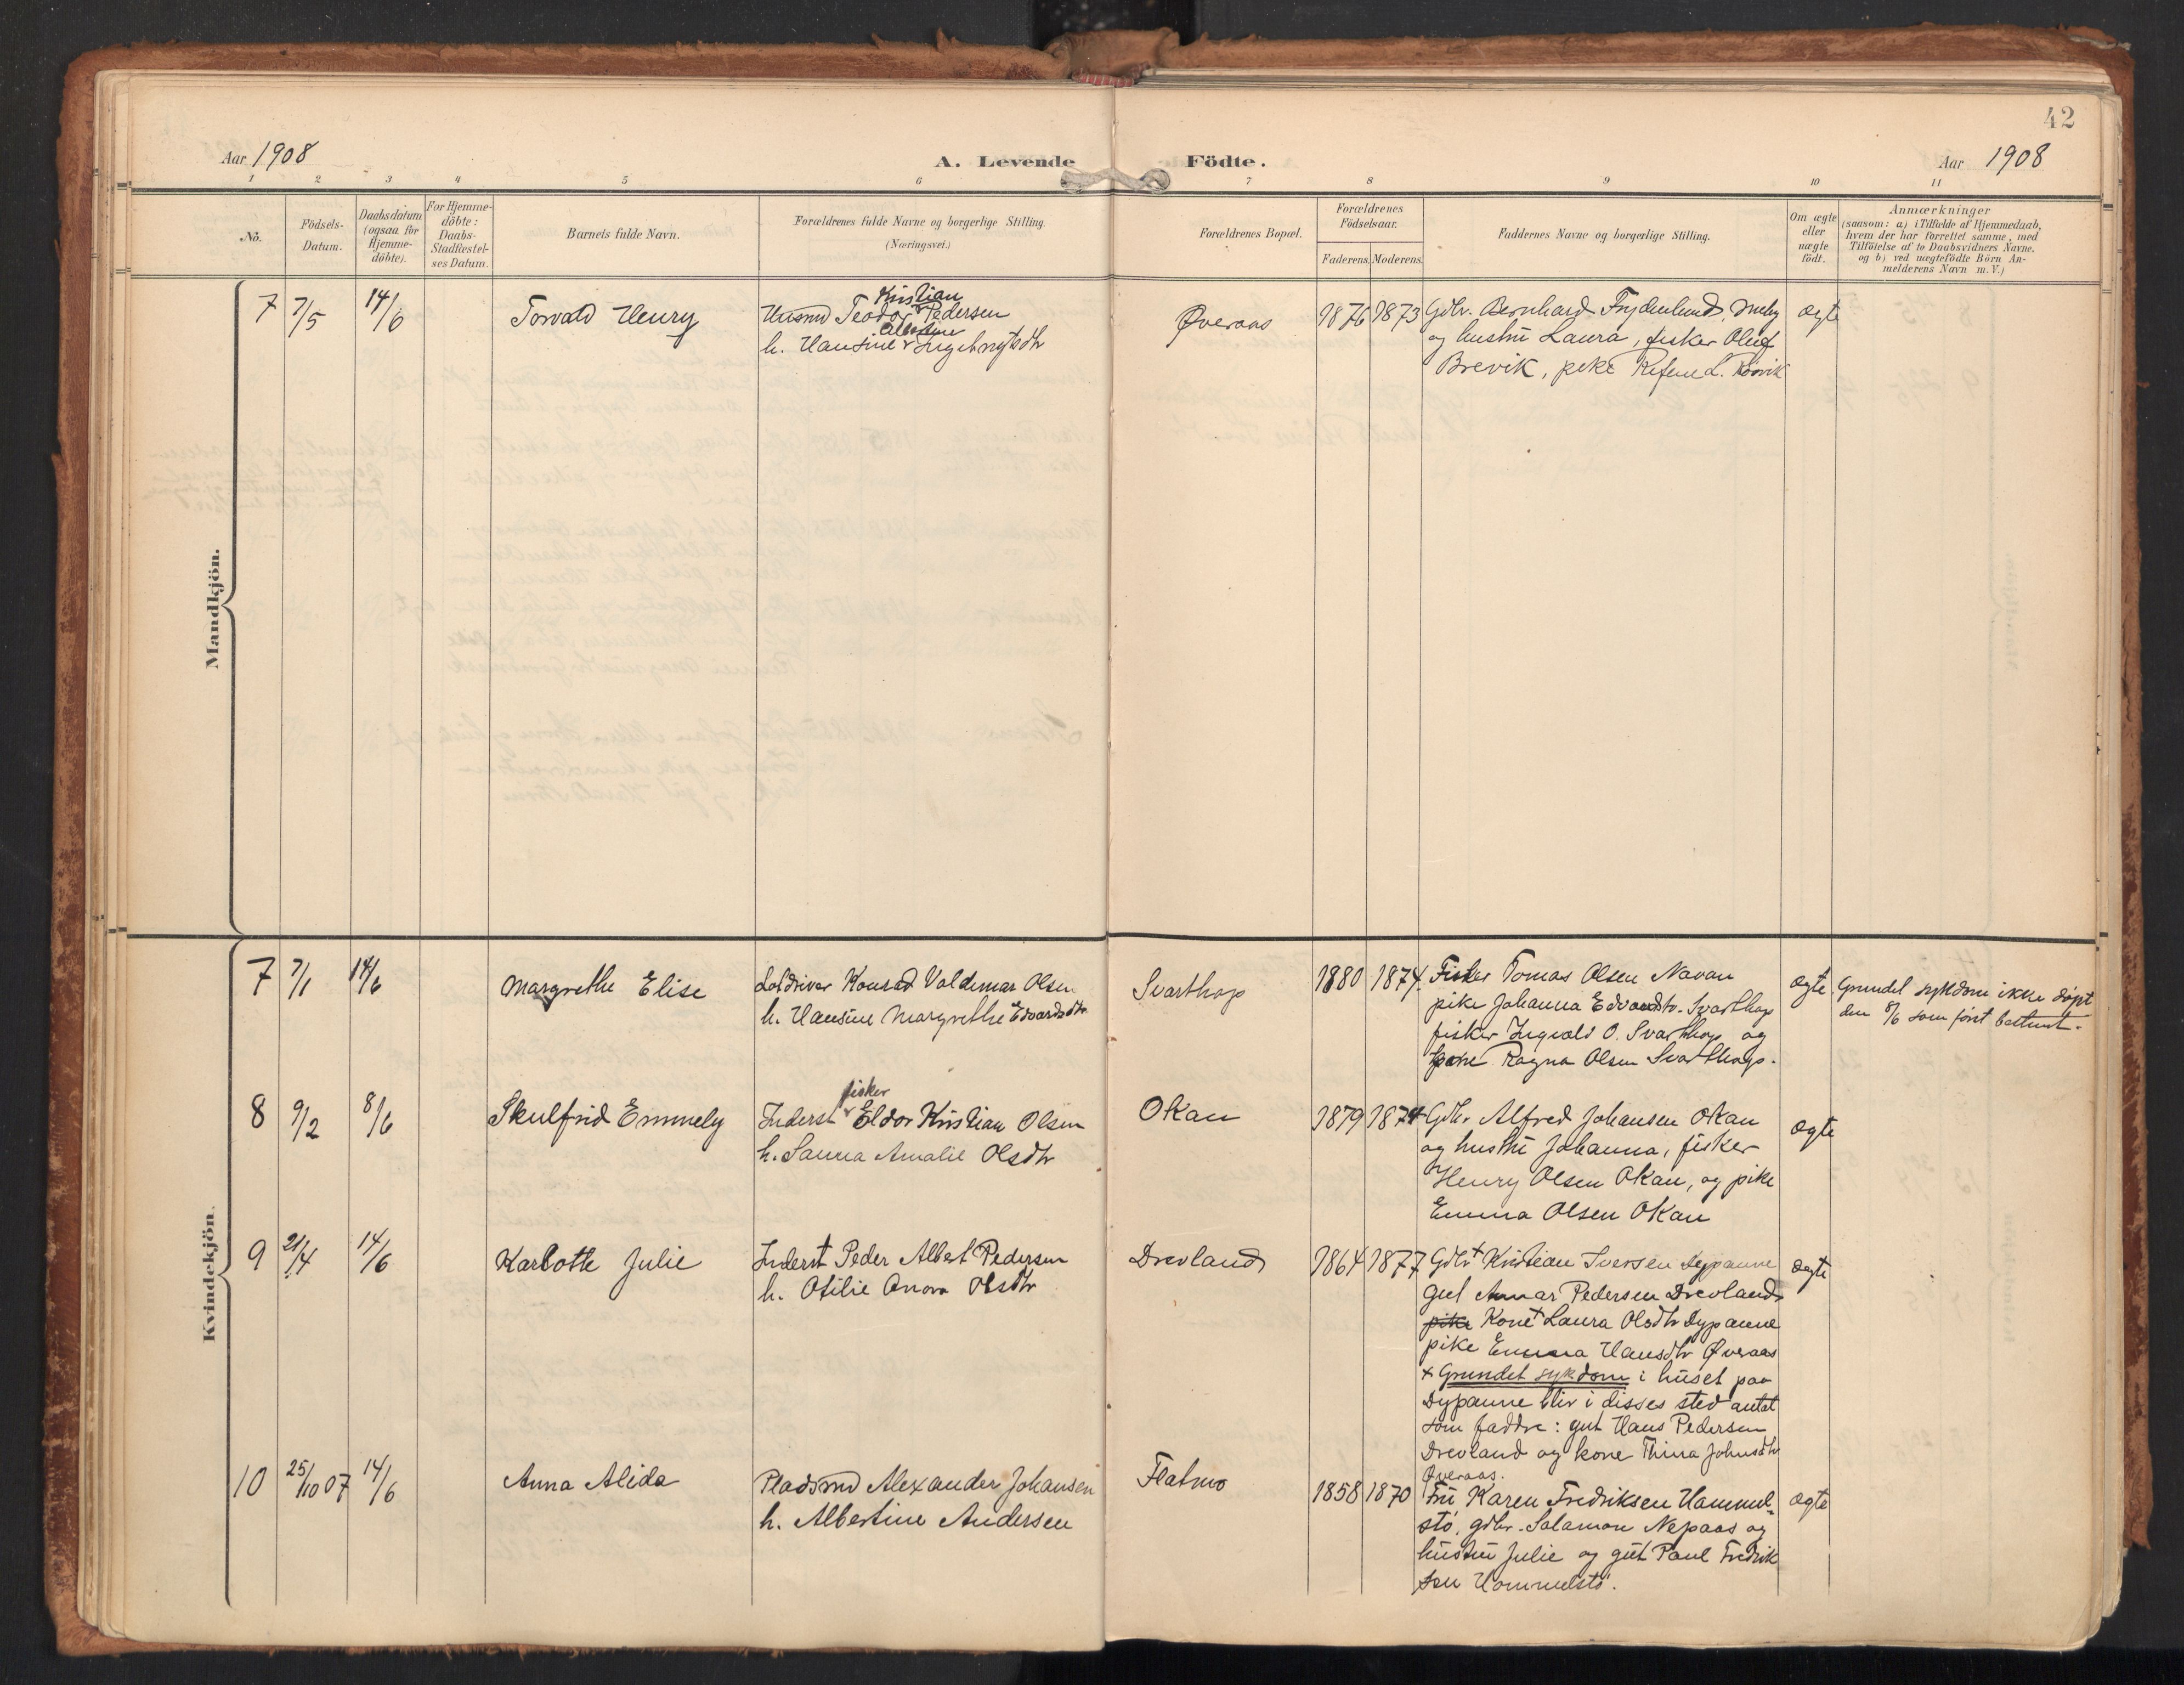 42
Aar 1908
A. Levende Födte.
Aar 1908
1 2 3 4 5 6 7 8 9 10 11
No.
Födsels-
Datum.
Daabsdatum
(ogsaa for
Hjemme-
döbte).
For Hjemme-
döbte:
Daabs-
Stadfæstel-
ses Datum.
Barnets fulde Navn.
Forældrenes fulde Navne og borgerlige Stilling.
(Næringsvei.)
Forældrenes Bopæl.
Forældrenes
Födselsaar.
Faderens. Moderens.
Faddernes Navne og borgerlige Stilling.
Om ægte
eller
uægte
födt.
Anmærkninger
(saasom: a) i Tilfælde af Hjemmedaab,
hvem der har forrettet samme, med
Tilföielse af to Daabsvidners Navne,
og b) ved uægtefödte Börn An-
melderens Navn m. V.)
Mandkjön.
7 7/5 14/6 Torvald Henry
Kristian
Husmd Teodor Pedersen
Albertine
h. Hansine Ingebrigtsdtr
Øveraas 1876 1873
Gdbr. Bernhard Frydenlund,
og hustru Laura, fisker Oluf
Brevik, pike
ægte
Kvindekjön.
7 7/1 14/6 Margrethe Elise
Konrad Valdemar Olsen
h. Hansine Margrethe Edvardsdtr
Svarthop 1880 1874.
Fisker Tomas Olsen Navan
pike Johanna Edvardsdtr. Svarthop
fisker Ingvald O. Svarthop og
Ragna Olsen Svarthop.
ægte
Grundet sykdom ikke döpt
den 8/6 som först bestemt.
8 9/2 8/6 Skulfrid Emmely
fisker
Inderst Eldor Kristian Olsen
h. Sanna Amalie Olsdtr
Okan 1879 1874
Gdbr. Alfred Johansen Okan
og hustru Johanna, fisker
Henry Olsen Okan, og pike
Emma Olsen Okan
ægte
9 21/4 14/6 Karlotte Julie
Inderst Peder Albert Pedersen
h. Otilie Anora Olsdtr
Drevland 1864 1877
Gdbr + Kristian Iversen Dypanne
gut Annar Pedersen Drevland
pike Kone + Laura Olsdtr Dypanne
pike Emma Hansdtr Øveraas
+ Grundet sykdom i huset paa
Dypanne blir i disses sted antat
som faddre: gut Hans Pedersen
Drevland og kone Thina Johnsdtr
Øveraas.
ægte
10 25/10 07 14/6 Anna Alida
Pladsmd Alexander Johansen
h. Albertine Andersen
Flatmo 1858 1870
Fru Karen Fredriksen Hommel-
stö, gdbr. Salamon Nepaas og
hustru Julie og gut Paul Fredrik
sen Hommelstö.
ægte